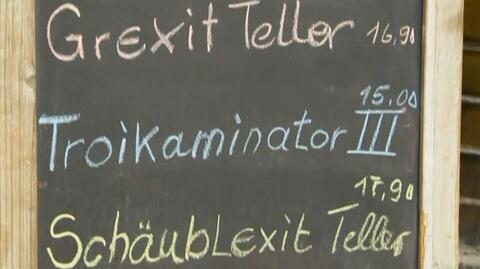 Grexit Teller 16,90
Troikaminator III 15,00
Schäublexit Teller 17,90